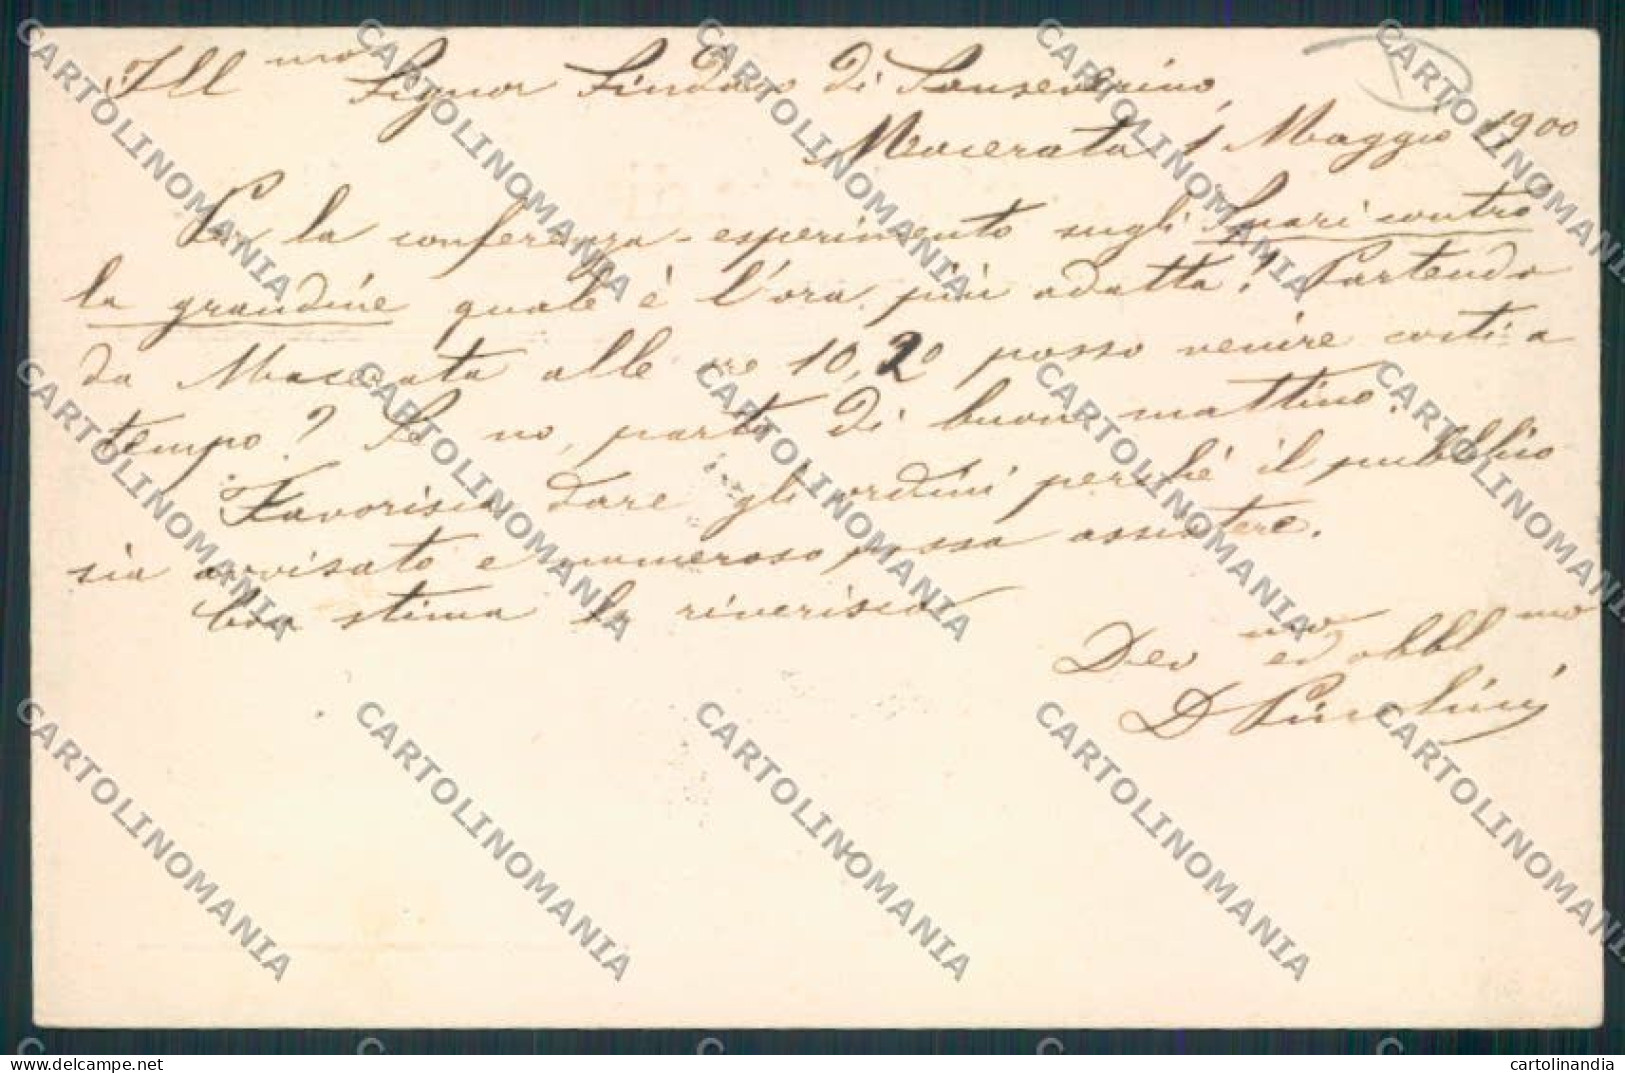 Ill mo Signor Sindaco di Sanseverino,
Macerata 1 Maggio 1900
Per la conferenza-esperimento sugli Spari contro
la grandine quale è l'ora più adatta? Partendo
da Macerata alle ore 10,20 posso venire costì a
tempo? Se no, parto di buon mattino.
Favorisca dare gli ordini perché il pubblico
sia avvisato e numeroso possa assistere.
Con stima la riverisco
Dev mo ed obbl mo
D
CARTOLINOMANIA
cartolinandia